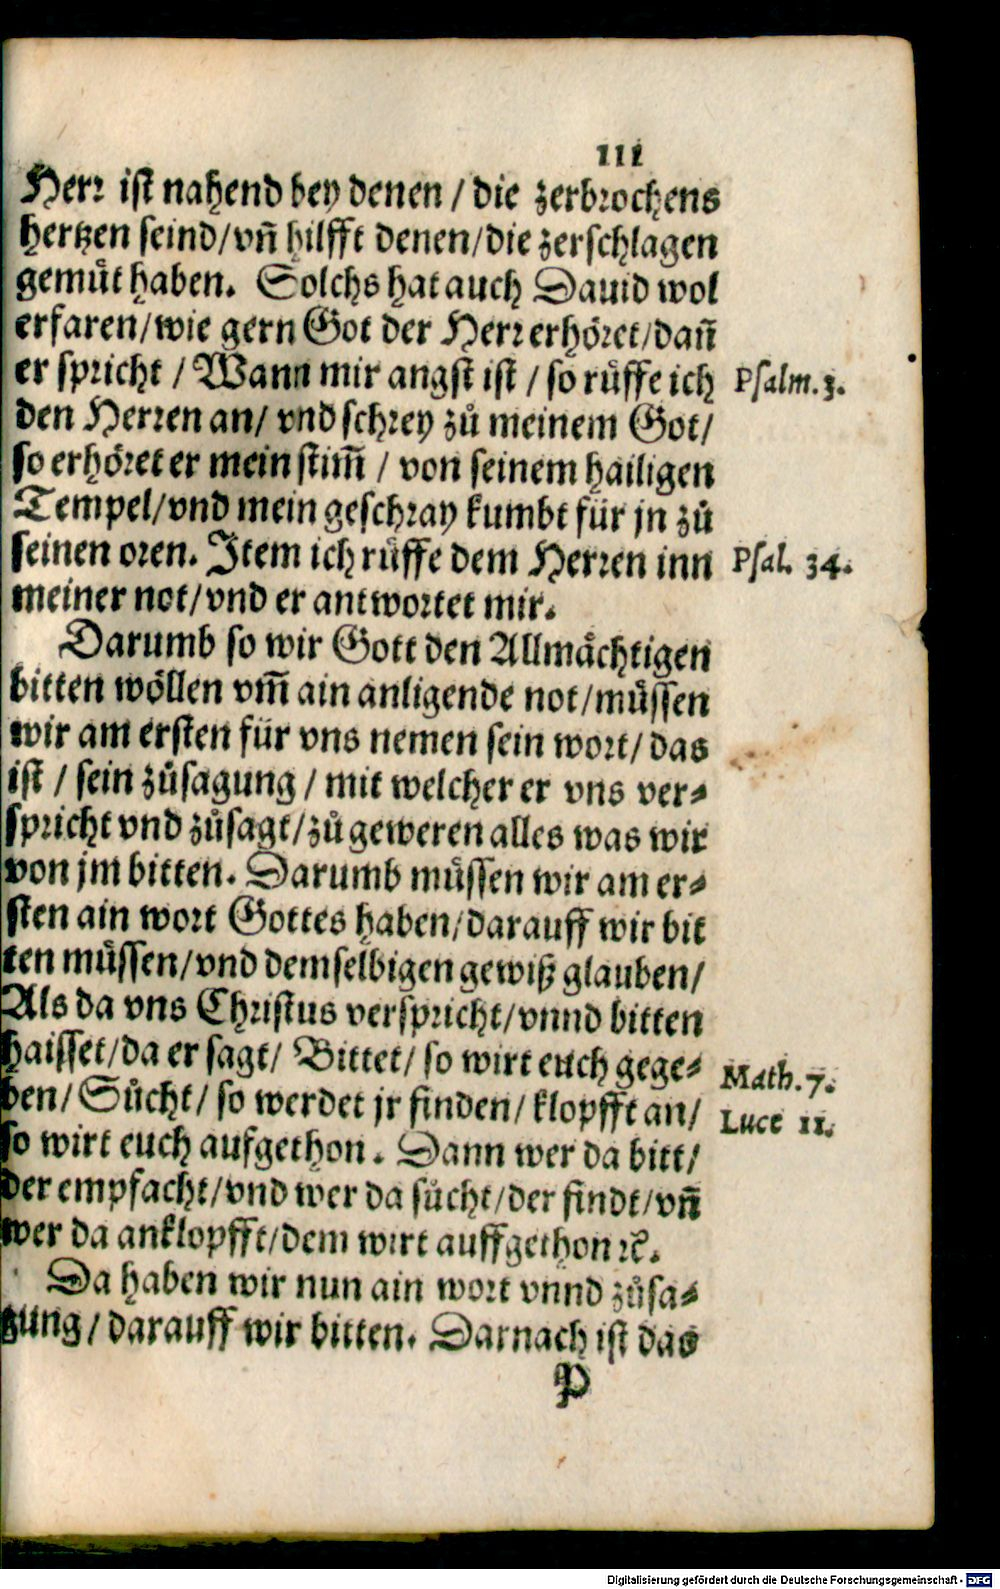 111
Herr ist nahend bey denen / die zerbrochens
hertzen seind/vñ hilfft denen/die zerschlagen
gemuͤt haben. Solchs hat auch Dauid wol
erfaren/wie gern Got der Herr erhoͤret/dañ
er spricht / Wann mir angst ist / so ruͤffe ich
Psalm. 3.
den Herren an/ vnd schrey zuͦ meinem Got/
so erhoͤret er mein stim̃ / von seinem hailigen
Tempel/vnd mein geschray kumbt für jn zuͦ
seinen oren. Item ich ruͤffe dem Herren inn
Psal. 34.
meiner not/vnd er antwortet mir.
Darumb so wir Gott den Allmaͤchtigen
bitten woͤllen vm̃ ain anligende not/muͤssen
wir am ersten für vns nemen sein wort/das
ist / sein zuͦsagung / mit welcher er vns ver⸗
spricht vnd zuͦsagt/zuͦ geweren alles was wir
von jm bitten. Darumb muͤssen wir am er⸗
sten ain wort Gottes haben/darauff wir bit
ten muͤssen/vnd demselbigen gewiß glauben/
Als da vns Christus verspricht/vnnd bitten
haisset/da er sagt/ Bittet/ so wirt euch gege⸗
Math. 7.
ben/ Suͤcht/ so werdet jr finden/ klopfft an/
Luce 11.
so wirt euch aufgethon. Dann wer da bitt/
der empfacht/vnd wer da suͤcht/der findt/vñ
wer da anklopfft/dem wirt auffgethon ꝛc̃.
Da haben wir nun ain wort vnnd zuͦsa⸗
gung/ darauff wir bitten. Darnach ist das
P
Digitalisierung gefördert durch die Deutsche Forschungsgemeinschaft - DFG